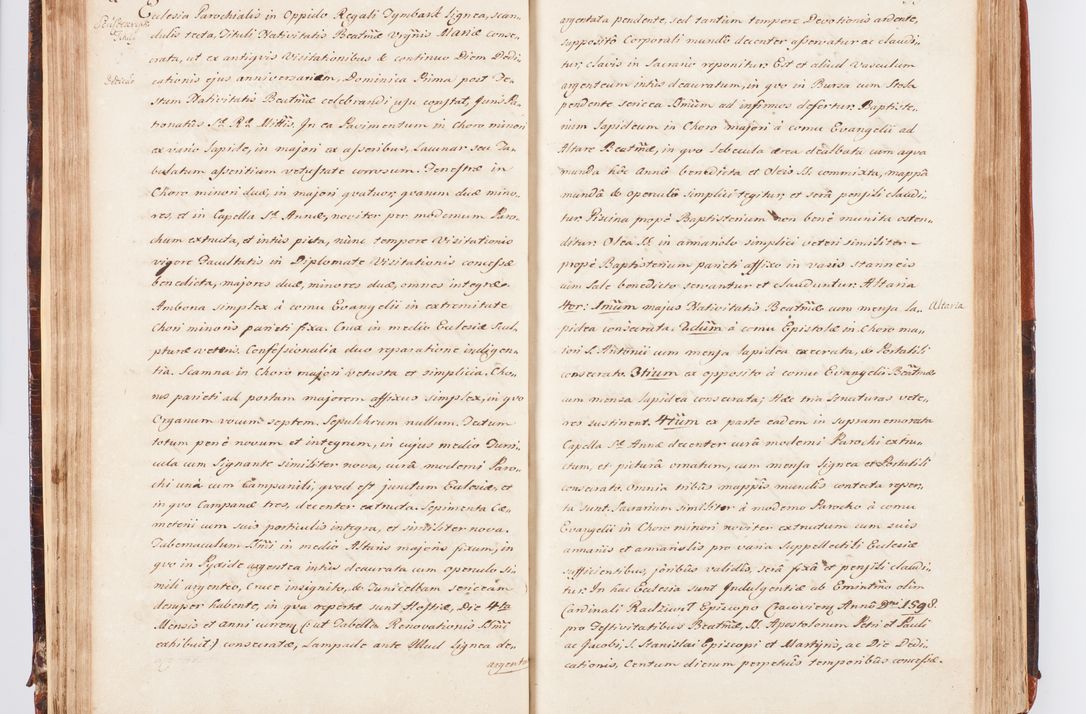 Ecclesia Parochialis in Oppido Regali Tymbark Lignea, scan„
dulis tecta, Tituli Nativitatis Beatmæ Virginis Mariæ conse„
crata, ut ex antiquis Visitationibus & continuo Diem Dedi„
cationis ejus anniversariam, Dominica Prima post Fe„
stum Nativitatis Beatmæ celebrandi usu constat, Juris Pa„
tronatus
In ea Pavimentum in Choro minori
ex vario lapide, in majori ex asseribus, Laquear seu Ta„
bulatum asseritium vetustate corrosum. Fenestræ in
Choro minori duæ, in majori quatuor, quarum duæ mino„
res et in Capella St. Annæ, noviter per modernum Paro„
chum extructa, et intus picta, nunc tempore Visitationis
vigore Facultatis in Diplomate Visitationis concessæ
benedicta, majores duæ, minores duæ, omnes integræ.
Ambona simplex à cornu Evangelii in extremitate
Chori minoris parieti fixa. Crux in medio Ecclesiæ Scul„
pturæ veteris. Confessionalia duo reparatione indigen„
tia. Scamna in Choro majori vetusta et simplicia. Cho„
rus parieti ad portam majorem affixus simplex, in quo
Organum vocum septem. Sepulchrum nullum. Tectum
totum penè novum et integrum, in cujus medio Turri„
cula cum Signante similiter nova, curâ moderni Paro„
chi unà cum Campanili, quod est junctum Ecclesiæ, et
in quo Campanæ tres, decenter extructa. Sepimenta Cæ„
meterii cum suis portulis integra, et similiter nova.
Tabernaculum Ssmi in medio Altaris majoris fixum, in
quo in Pyxide argentea intus deaurata cum operculo Si„
mili argenteo, Cruce insignito, & Tunicellam sericeam
desuper habente, in qua repertæ sunt Hostiæ, Die 4ta
Mensis et anni curren: (ut Tabella Renovationis Ssmi
exhibuit) consecratæ, Lampade ante illud Lignea de„
argenta„
argentata pendente, sed tantum tempore Devotionis ardente,
supposito Corporali mundo decenter asservatur ac claudi„
tur, clavis in Sacrario reponitur. Est et aliud Vasculum
argenteum intus deauratum, in quo in Bursa cum Stola
pendente sericea Ssmum ad infirmos defertur. Baptiste„
rium lapideum in Choro majori à cornu Evangelii ad
Altare Beatmæ, in quo Lebecula ærea dealbata cum aqua
munda hoc Anno benedicta et Oleis SS. commixta, mappâ
mundâ & operculo simplici tegitur, et serâ pensili claudi„
tur. Piscina propè Baptisterium non benè munita osten„
ditur. Olea SS. in armariolo simplici veteri similiter
propè Baptisterium parieti affixo in vasis stanneis
cum Sale benedicto servantur et clauduntur. Altaria
4tor: 1mum majus Nativitatis Beatmæ cum mensa la„
Altaria
pidea consecrata. 2dum à cornu Epistolæ in Choro ma„
iori S. Antonii cum mensa lapidea execrata, & Portatili
consecrato. 3tium ex opposito à cornu Evangelii Beatmæ
cum mensa lapidea consecrata; Hæc tria structuras vete„
res sustinent. 4tum ex parte eadem in supramemorata
Capella St. Annæ decenter curâ moderni Parochi extru„
ctum, et picturâ ornatum, cum mensa lignea et Portatili
consecrato. Omnia tribus mappis mundis contecta reper„
ta sunt. Sacrarium similiter à moderno Parocho à cornu
Evangelii in Choro minori noviter extructum cum suis
armariis et armariolis pro varia Suppellectili Ecclesiæ
sufficientibus, foribus validis, serâ fixâ et pensili claudi„
tur. In hac Ecclesia sunt Indulgentiæ ab Emintmo olim
Cardinali Radziwił Episcopo Cracovien: Anno Dni 1598.
pro Festivitatibus Beatmæ, SS. Apostolorum Petri et Pauli
ac Jacobi, S. Stanislai Episcopi et Martyris, ac Die Dedi„
cationis, Centum dierum perpetuis temporibus concessæ.